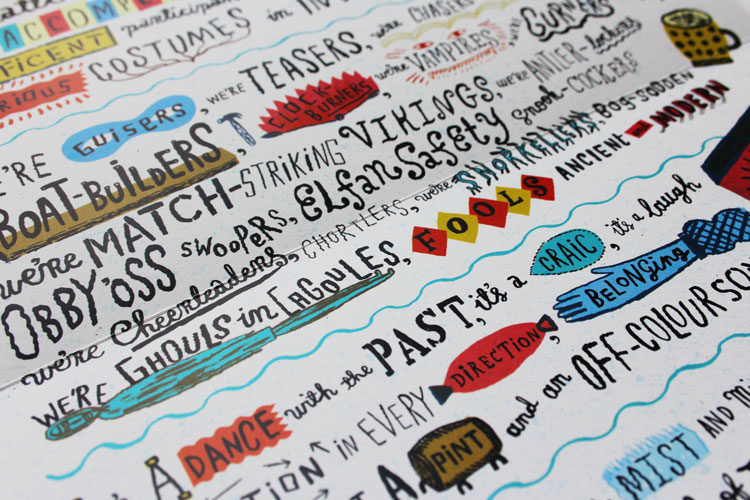 ACCOMPL
FICENT participan in
RIOUS COSTUMES
'RE GUISERS, we're TEASERS, we're CHASERS
BOAT-BUILDERS, CLOCK-BURNERS, we're VAMPIRES, we're GURNERS
we're MATCH-STRIKING VIKINGS, we're ANTLER-lockers
OBBY'OSS SWOOPERS, ELFan SAFety Snook-COCKERS
we're Cheerleaders, CHORTLERS, we're SNORKELLERS, BOG-SODDEN
WE'RE GHOULS in CAGOULES, FOOLS ANCIENT and MODERN
A DANCE with the PAST, it's a CRAIC, it's a laugh
TION in EVERY DIRECTION, BELONGING
A PINT and an OFF-COLOUR SON
MIST AND MI